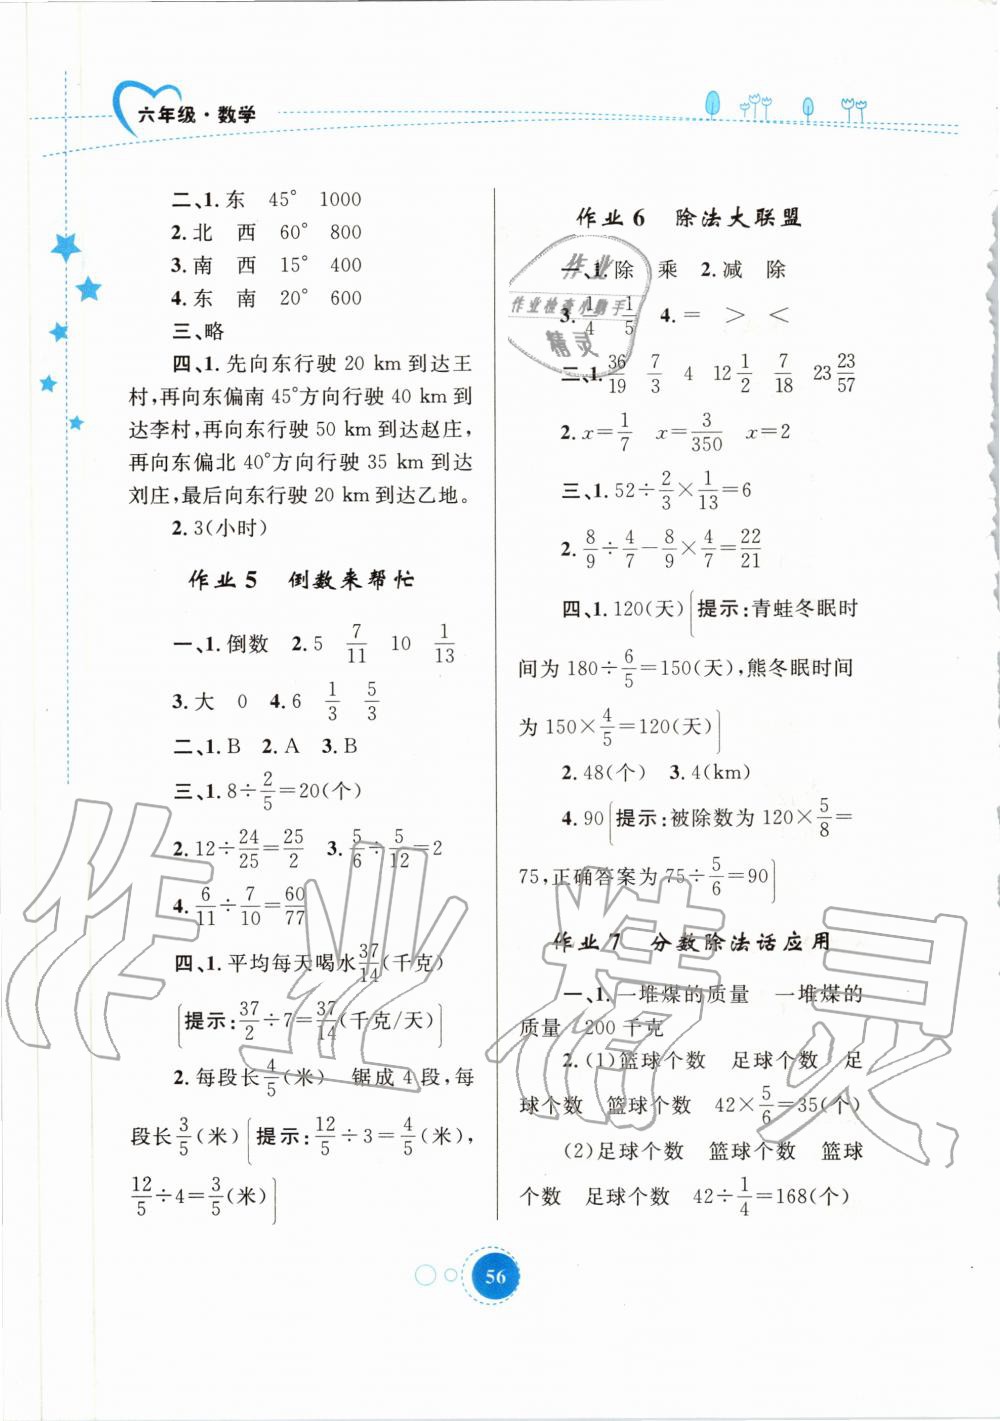 六年级·数学
二、1.东 45° 1000
2.北 西 60° 800
3.南 西 15° 400
4.东 南 20° 600
三、略
四、1.先向东行驶 20 km到达王
村,再向东偏南 45°方向行驶 40 km 到
达李村,再向东行驶 50 km 到达赵庄,
再向东偏北 40°方向行驶 35 km 到达
刘庄,最后向东行驶 20 km到达乙地。
2.3(小时)
作业5 倒数来帮忙
一、1.倒数 2.5 7/11 10 1/13
3.大 0 4.6 1/3 5/3
二、1.B 2.A 3.B
三、1.8÷2/5=20(个)
2.12÷24/25=25/2 3.5/6÷5/12=2
4.6/11÷7/10=60/77
四、1.平均每天喝水37/14(千克)
[提示:37/2÷7=37/14(千克/天)]
2.每段长4/5(米) 锯成4段,每
段长3/5(米) [提示:12/5÷3=4/5(米),
12/5÷4=3/5(米)]
作业6 除法大联盟
一、1.除 乘 2.减 除
3.1/4 1/5 4.= > <
二、1.36/19 7/3 4 12 1/2 7/18 23 23/57
2.x=1/7 x=3/350 x=2
三、1.52÷2/3×1/13=6
2.8/9÷4/7-8/9×4/7=22/21
四、1.120(天) [提示:青蛙冬眠时
间为 180÷6/5=150(天),熊冬眠时间
为 150×4/5=120(天)]
2.48(个) 3.4(km)
4.90 [提示:被除数为 120×5/8=
75,正确答案为 75÷5/6=90]
作业7 分数除法话应用
一、1.一堆煤的质量 一堆煤的
质量 200 千克
2.(1)篮球个数 足球个数 足
球个数 篮球个数 42×5/6=35(个)
(2)足球个数 篮球个数 篮球
个数 足球个数 42÷1/4=168(个)
56
作业
作业检查小助手
精灵
作业精灵